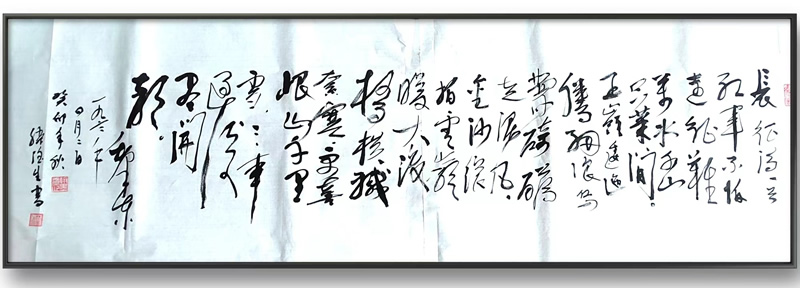 長征詩一首
红軍不怕
遠征難
萬水千山
只等閒
五嶺逶迤
騰細浪烏
蒙磅礴
走泥丸
金沙浪
拍雲崖
暖大渡
橋橫鐵
索寒更喜
岷山千里
雪三軍
過後
尽開
颜
毛澤東
一九六二年
四月二日
癸卯年秋
生書